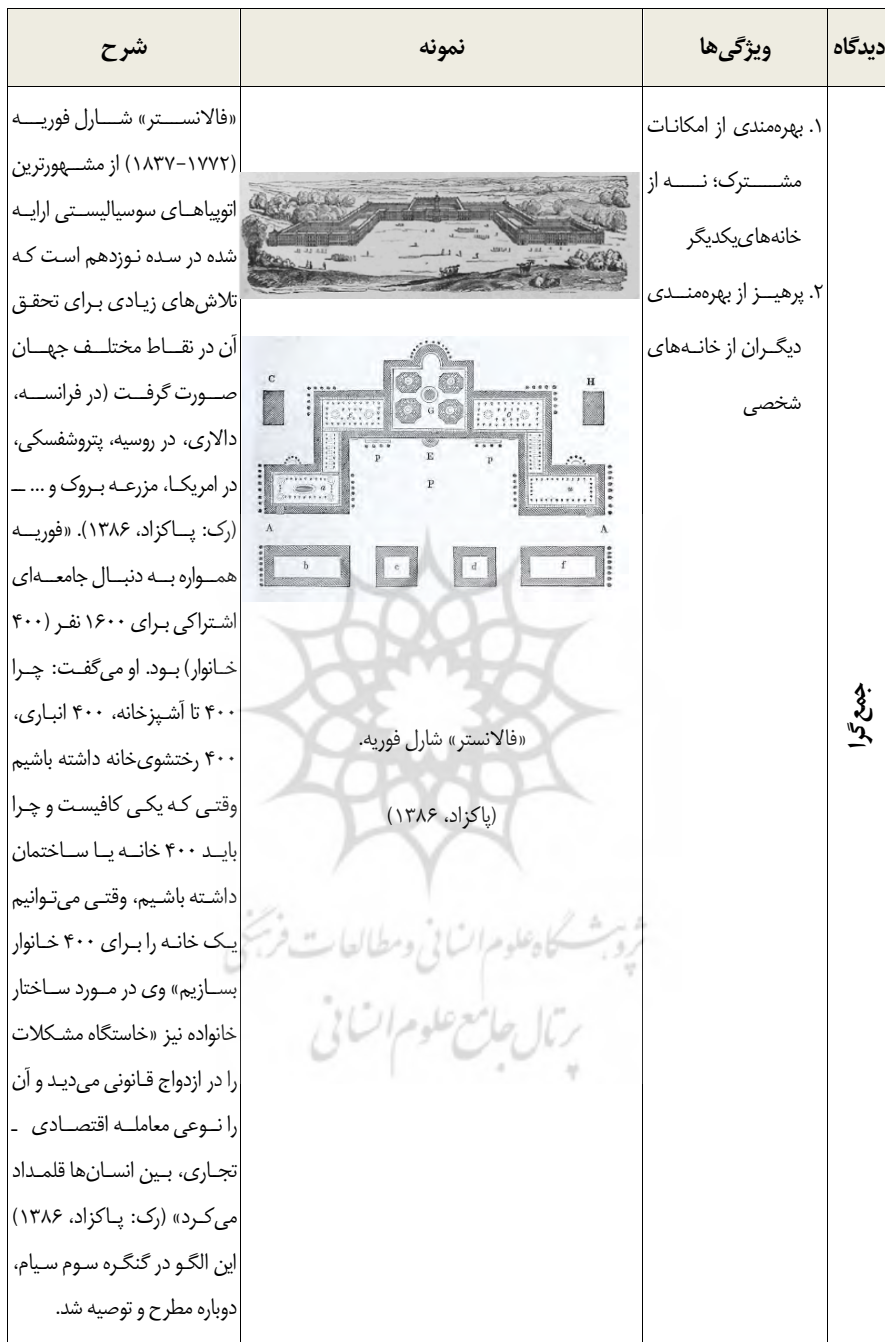 دیدگاه
ویژگی‌ها
نمونه
شرح
جمع‌گرا
۱. بهره‌مندی از امکانات
مشترک؛ نه از
خانه‌های‌یکدیگر
۲. پرهیز از بهره‌مندی
دیگران از خانه‌های
شخصی
C
H
G
o
P
E
P
P
a
n
A
A
b
c
d
f
«فالانستر» شارل فوریه.
(پاکزاد، ۱۳۸۶)
«فالانستر» شارل فوریه
(۱۷۷۲-۱۸۳۷) از مشهورترین
اتوپیاهای سوسیالیستی ارایه
شده در سده نوزدهم است که
تلاش‌های زیادی برای تحقق
آن در نقاط مختلف جهان
صورت گرفت (در فرانسه،
دالاری، در روسیه، پتروشفسکی،
در امریکا، مزرعه بروک و ... ـ
(رک: پاکزاد، ۱۳۸۶). «فوریه
همواره به دنبال جامعه‌ای
اشتراکی برای ۱۶۰۰ نفر (۴۰۰
خانوار) بود. او می‌گفت: چرا
۴۰۰ تا آشپزخانه، ۴۰۰ انباری،
۴۰۰ رختشوی‌خانه داشته باشیم
وقتی که یکی کافیست و چرا
باید ۴۰۰ خانه یا ساختمان
داشته باشیم، وقتی می‌توانیم
یک خانه را برای ۴۰۰ خانوار
بسازیم» وی در مورد ساختار
خانواده نیز «خاستگاه مشکلات
را در ازدواج قانونی می‌دید و آن
را نوعی معامله اقتصادی ـ
تجاری، بین انسان‌ها قلمداد
می‌کرد» (رک: پاکزاد، ۱۳۸۶)
این الگو در گنگره سوم سیام،
دوباره مطرح و توصیه شد.
پژوهشگاه علوم انسانی و مطالعات فرهنگی
پرتال جامع علوم انسانی